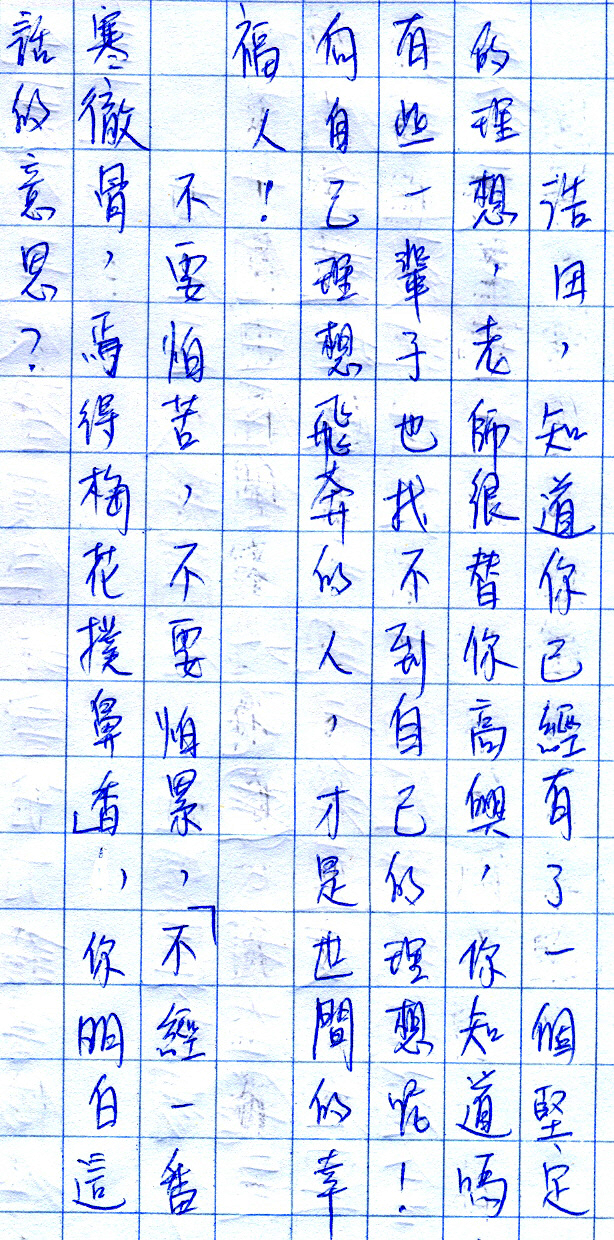 浩田，知道你已經有了一個堅定
的理想，老師很替你高興，你知道嗎
有些一輩子也找不到自己的理想呢！
向自己理想飛奔的人，才是世間的幸
福人！
不要怕苦，不要怕累，「不經一番
寒徹骨，焉得梅花撲鼻香」，你明白這
話的意思？